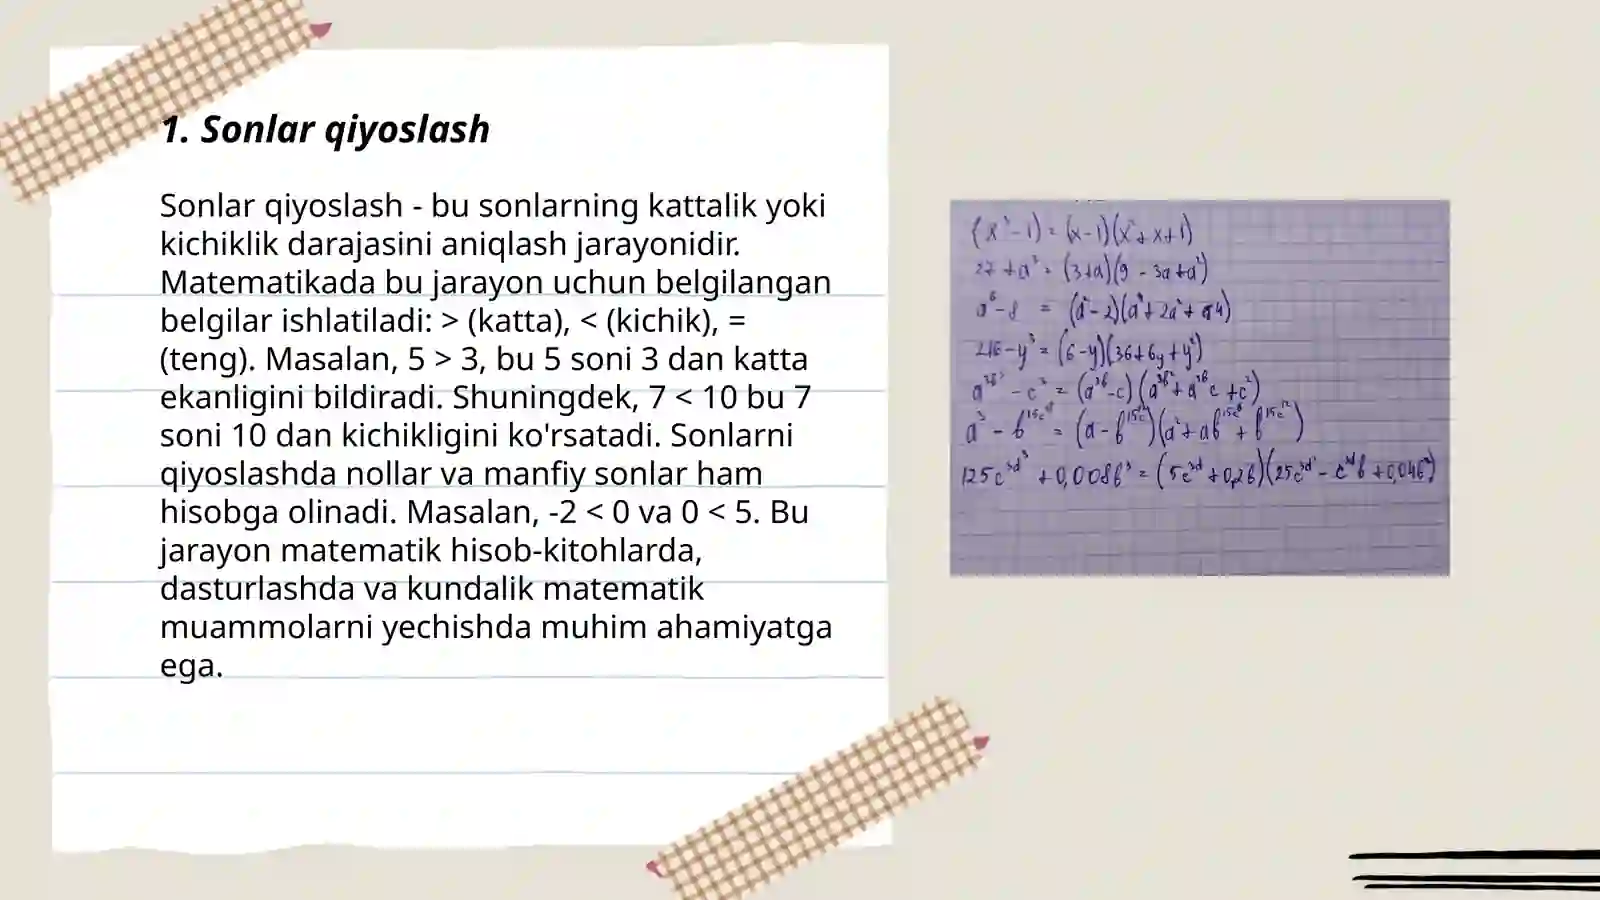 1. Sonlar qiyoslash
Sonlar qiyoslash - bu sonlarning kattalik yoki
kichiklik darajasini aniqlash jarayonidir.
Matematikada bu jarayon uchun belgilangan
belgilar ishlatiladi: > (katta), < (kichik), =
(teng). Masalan, 5 > 3, bu 5 soni 3 dan katta
ekanligini bildiradi. Shuningdek, 7 < 10 bu 7
soni 10 dan kichikligini ko'rsatadi. Sonlarni
qiyoslashda nollar va manfiy sonlar ham
hisobga olinadi. Masalan, -2 < 0 va 0 < 5. Bu
jarayon matematik hisob-kitohlarda,
dasturlashda va kundalik matematik
muammolarni yechishda muhim ahamiyatga
ega.
(x³-1) = (x-1)(x²+x+1)
27+a³ = (3+a)(9-3a+a²)
a⁶-8 = (a²-2)(a⁴+2a²+4)
216-y³ = (6-y)(36+6y+y²)